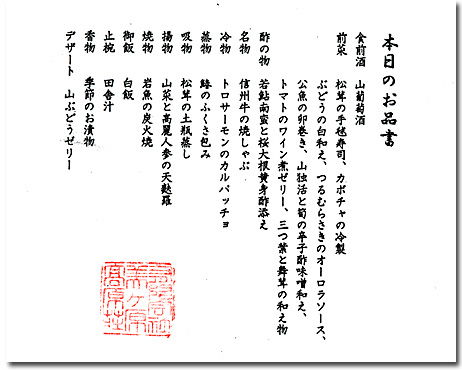 本日のお品書
食前酒　山葡萄酒
前菜　松茸の手毬寿司、カボチャの冷製
ぶどうの白和え、つるむらさきのオーロラソース、
公魚の卵巻き、山独活と筍の辛子酢味噌和え、
トマトのワイン煮ゼリー、三つ葉と舞茸の和え物
酢の物　若鮎南蛮と桜大根黄身酢添え
名物　信州牛の焼しゃぶ
冷物　トロサーモンのカルパッチョ
蒸物　鰆のふくさ包み
吸物　松茸の土瓶蒸し
揚物　山菜と高麗人参の天麩羅
焼物　岩魚の炭火焼
御飯　白飯
止椀　田舎汁
香物　季節のお漬物
デザート　山ぶどうゼリー
美ヶ原
高原荘